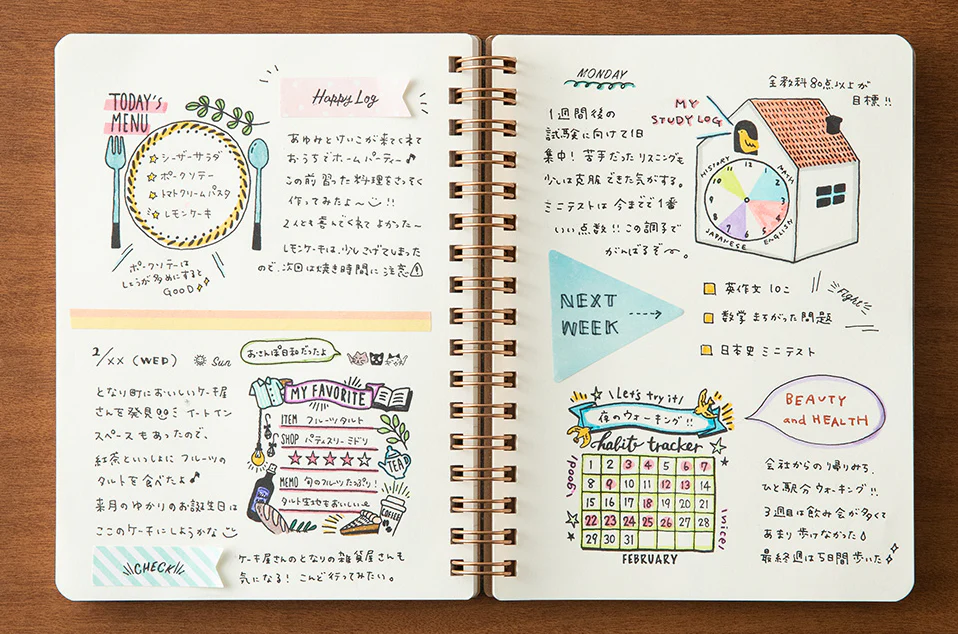 TODAY'S
MENU
シーザーサラダ
ポークソテー
トマトクリームパスタ
レモンケーキ
ポークソテーは
しょうが多めにすると
GOOD
Happy Log
あゆみとけいこが来てくれて
おうちでホームパーティー♪
この前習った料理をさっそく
作ってみたよ〜!!
2人とも喜んでくれてよかった〜
レモンケーキは、少しこげてしまった
ので、次回は焼き時間に注意
2/××(WED)
Sun
おさんぽ日和だったよ
となり町においしいケーキ屋
さんを発見!! イートイン
スペースもあったので、
紅茶といっしょに フルーツの
タルトを食べたよ♪
来月のゆかりのお誕生日は
ここのケーキにしようかな
MY FAVORITE
ITEM フルーツタルト
SHOP パティスリーミドリ
★★★★☆
MEMO 旬のフルーツたっぷり!
タルト生地もおいしい〜
TEA
COFFEE
CHECK!
ケーキ屋さんのとなりの雑貨屋さんも
気になる! こんど行ってみたい。
MONDAY
1週間後の
試験に向けて1日
集中! 苦手だったリスニングも
少しは克服できた気がする。
ミニテストは今までで1番
いい点数!! この調子で
がんばるぞー
MY
STUDY LOG
全教科80点以上が
目標!!
HISTORY
MATH
JAPANESE
ENGLISH
12 1 2 3 4 5 6 7 8 9 10 11
NEXT
WEEK
英作文 10こ
数学 まちがった問題
日本史 ミニテスト
Fight
Let's try it!
夜のウォーキング!!
habit tracker
good!
1 2 3 4 5 6 7
8 9 10 11 12 13 14
15 16 17 18 19 20 21
22 23 24 25 26 27 28
29 30 31
nice!
FEBRUARY
BEAUTY
and HEALTH
会社からの帰りみち、
ひと駅分ウォーキング!!
3週目は飲み会が多くて
あまり歩けなかった
最終週は5日間歩いた